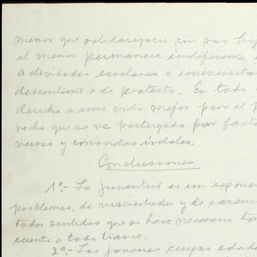 menos que solidarizarse con sus hij
al menos permanece indiferente a
actividades escolares o universita
descontento o de protesta. En todo
derecho a una vida mejor para el p
recho que se ve postergado por fact
versas y conocidas índoles.
Conclusiones
1º.- La juventud es un expone
problemas, de necesidades y de caren
todos sentidos que se hace necesario
cueste a todo trance.
2º.- Los jóvenes cuyas edade